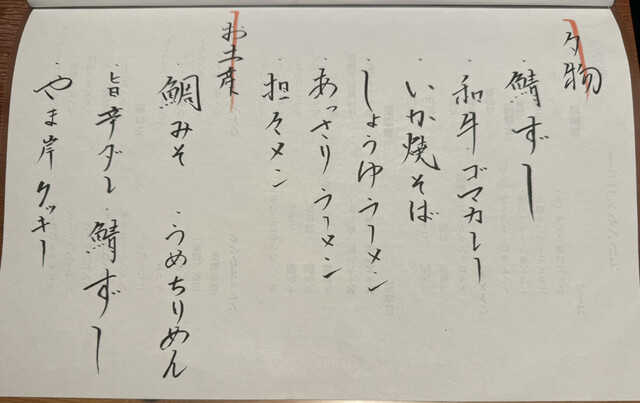 夕物
・鯖ずー
・和牛ゴマカレー
・いか焼そば
・しょうゆラーメン
・あっさりラーメン
・担々メン
お土産
・鯛みそ ・うめちりめん
・旨辛ダレ ・鯖ずー
・やま岸クッキー